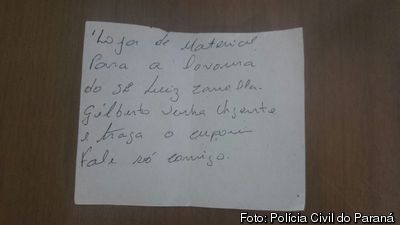 "Loja de Material
Para a Lavoura
do SR Luiz
Gilberto venha Urgente
e traga o cupom
Fale só comigo.
Foto: Polícia Civil do Paraná